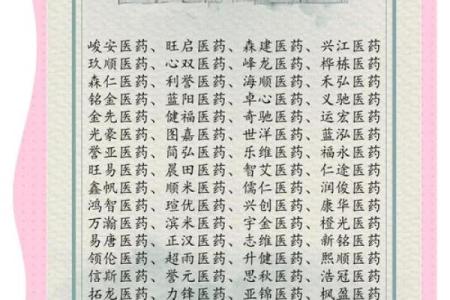 峻安医药、旺启医药、森建医药、兴江医药
玖顺医药、心双医药、峰龙医药、桦栋医药
森仁医药、利誉医药、海顺医药、禾弘医药
铭金医药、蓝阳医药、卓心医药、义驰医药
金先医药、健福医药、奇驰医药、运宏医药
光豪医药、图嘉医药、世洋医药、蓝泓医药
誉亚医药、简弘医药、乐维医药、福永医药
旺易医药、晨田医药、智艾医药、仁途医药
鑫帆医药、顺米医药、儒仁医药、润俊医药
鸿智医药、瑄优医药、兴创医药、康华医药
万瀚医药、滨米医药、宇金医药、橙光医药
易唐医药、正汉医药、志维医药、新铭医药
领伦医药、超雨医药、升健医药、熙顺医药
信斯医药、誉元医药、思秋医药、浩冠医药
拓龙医药、力锋医药、亚锦医药、枫盈医药